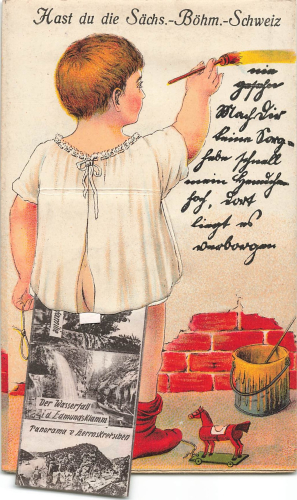 Hast du die Sächs.-Böhm.-Schweiz
nie
gesehen
Mach dir
keine Sorg-
hebe schnell
mein Hemdchen
hoch, dort
liegt es
verborgen
Der Wasserfall
i.d. Edmundsklamm
Panorama v. Herrnskretschen